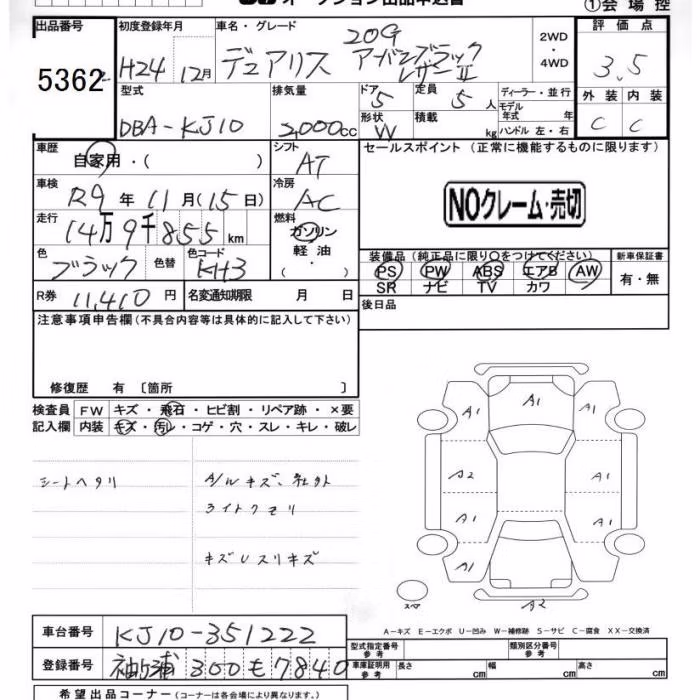 オークション出品申込書
①会場控
出品番号
5362
初度登録年月
H24 12月
車名・グレード
20G
デュアリス アーバンブラック
レザーⅡ
2WD
・
4WD
評価点
3.5
型式
DBA-KJ10
排気量
2,000cc
ドア
5
定員
5人
形状
W
積載
kg
ディーラー・並行
モデル
年式 年
ハンドル 左・右
外装 内装
C C
車歴
自家用・( )
シフト
AT
セールスポイント (正常に機能するものに限ります)
NOクレーム・売切
車検
R9年11月(15日)
冷房
AC
走行
14万9千855km
燃料
ガソリン
軽油
・
( )
色
ブラック
色替
色コード
KH3
装備品 (純正品に限り○をつけてください)
PS PW ABS エアB AW
SR ナビ TV カワ
新車保証書
有・無
R券 11,410円
名変通知期限 月 日
後日品
注意事項申告欄(不具合内容等は具体的に記入して下さい)
修復歴 有 〔箇所 〕
検査員
記入欄
FW キズ・飛石・ヒビ割・リペア跡・×要
内装 キズ・汚レ・コゲ・穴・スレ・キレ・破レ
シートヘタリ
A/Wキズ、社外
ライトクモリ
キズUスリキズ
A1
A1
A1
A2
A1
A1
A1
A1
スペア
A2
A-キズ E-エクボ U-凹み W-補修跡 S-サビ C-腐食 XX-交換済
車台番号
KJ10-351222
登録番号
袖ヶ浦 300 も 7840
型式指定番号
参考
類別区分番号
参考
車庫証明用
参考
長さ cm
幅 cm
高さ cm
希望出品コーナー (コーナーは各会場により異なります。)